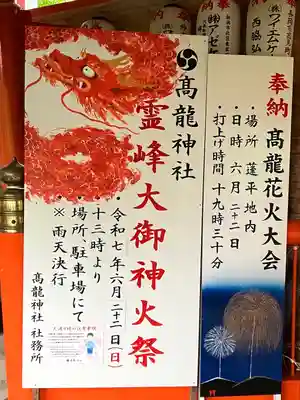 奉納 高龍花火大会
・場所 蓬平地内
・日時 六月二十二日
・打上げ時間 十九時三十分
髙龍神社
霊峰大御神火祭
・令和七年六月二十二日(日)
十三時より
・場所 駐車場にて
・※雨天決行
髙龍神社 社務所
奉
(株)ワイエムケ
西脇弘
(株)アゼ